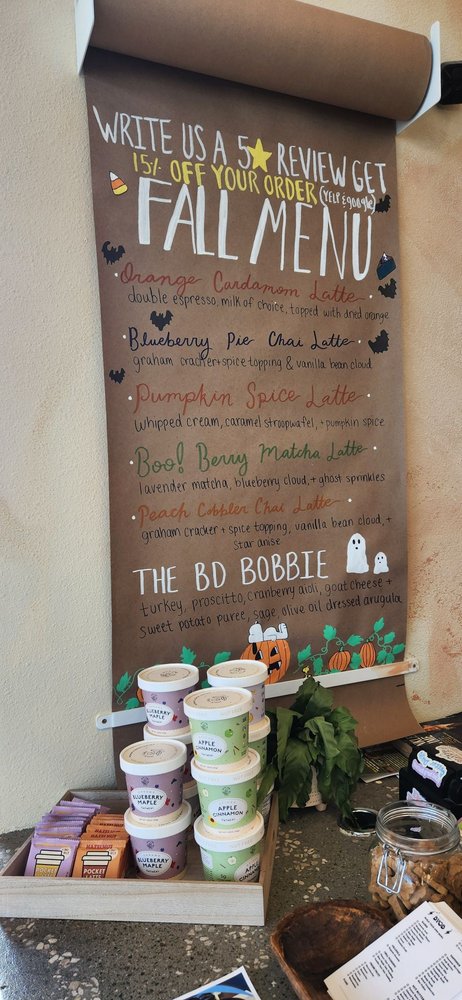 WRITE US A 5★ REVIEW GET
15% OFF YOUR ORDER (YELP & google)
FALL MENU
Orange Cardamom Latte
double espresso, milk of choice, topped with dried orange
Blueberry Pie Chai Latte
graham cracker + spice topping & vanilla bean cloud
Pumpkin Spice Latte
whipped cream, caramel stroopwafel, + pumpkin spice
Boo! Berry Matcha Latte
lavender matcha, blueberry cloud, + ghost sprinkles
Peach Cobbler Chai Latte
graham cracker + spice topping, vanilla bean cloud, +
star anise
THE BD BOBBIE
turkey, proscitto, cranberry aioli, goat cheese +
sweet potato puree, sage, olive oil dressed arugula
BLUEBERRY
MAPLE
OATMEAL
APPLE
CINNAMON
OATMEAL
BLUEBERRY
MAPLE
OATMEAL
APPLE
CINNAMON
OATMEAL
BLUEBERRY
MAPLE
APPLE
CINNAMON
HAZELNUT
HAZELNUT
POCKET
LATTE
POCKET
LATTE